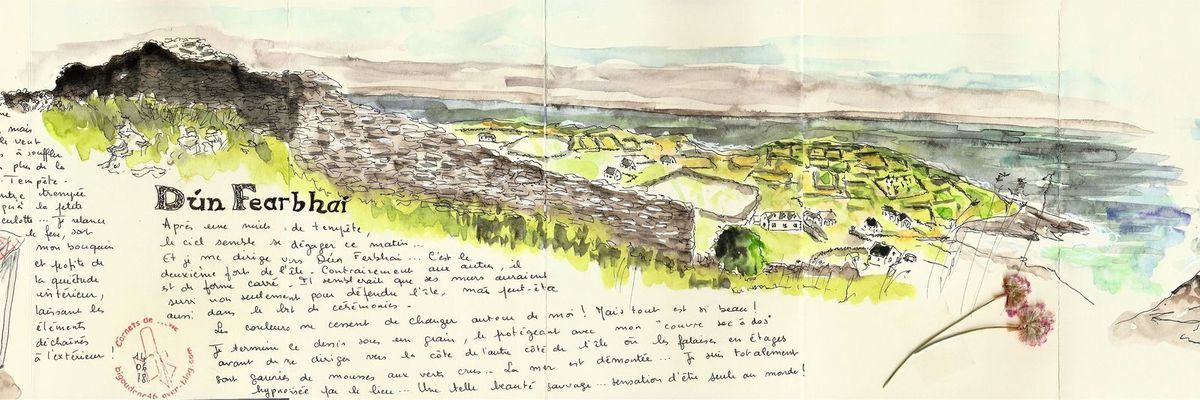 mais
le vent
à souffler
plus de la
Tempête
trempée
la petite
culotte... Je relance
le feu, sort
mon bouquin
et profite de
la quiétude
intérieur,
laissant les
éléments
déchaînés
à l'extérieur !
Dún Fearbhaí
Après une nuit de tempête,
le ciel semble se dégager ce matin...
Et je me dirige vers Dún Fearbhai... C'est le
deuxième fort de l'île. Contrairement aux autres, il
est de forme carré. Il semblerait que ses murs auraient
servi non seulement pour défendre l'île, mais peut-être
aussi dans le but de cérémonies.
Les couleurs ne cessent de changer autour de moi ! Mais tout est si beau !
Je termine le dessin sous un grain, le protégeant avec mon "couvre sac à dos"
avant de me diriger vers la côte de l'autre côté de l'île où les falaises en étages
sont garnies de mousses aux verts crus... La mer est démontée... Je suis totalement
hypnotisée par le lieu... Une telle beauté sauvage... sensation d'être seule au monde !
Carnets de
14
06
18
bigoudene46.over-blog.com